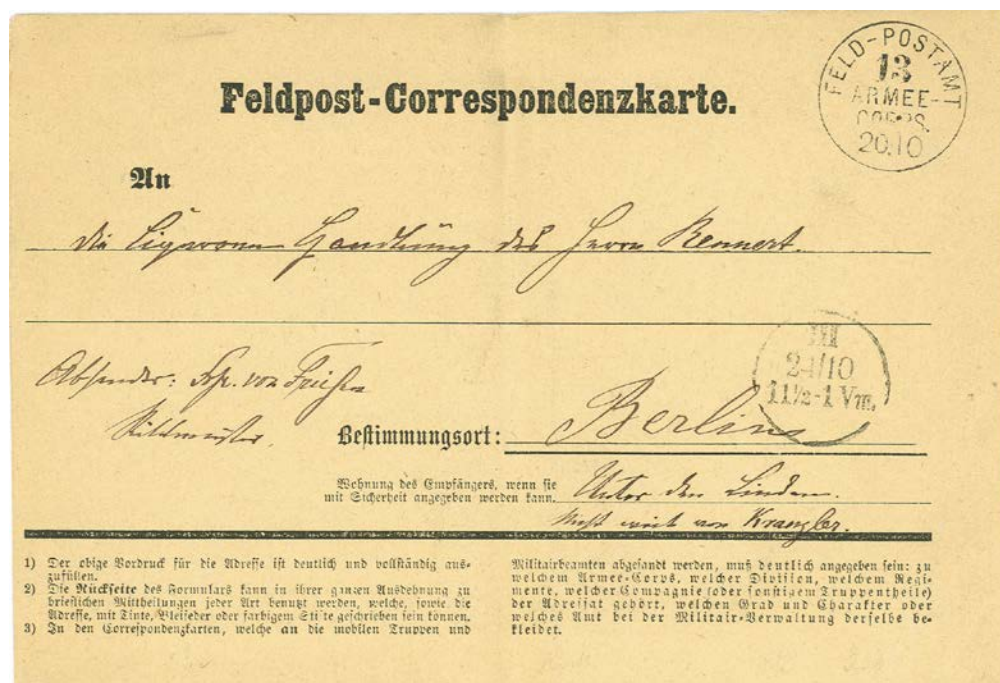 Feldpost-Correspondenzkarte.
FELD-POSTAMT
13
ARMEE-
CORPS
20.10
An
die Cigarren Handlung des Herrn Rennert.
III
24/10
11½-1 Vm.
Absender: Frh. von Friesen
Rittmeister.
Bestimmungsort: Berlin
Wohnung des Empfängers, wenn sie
mit Sicherheit angegeben werden kann.
Unter den Linden.
Nicht weit von Kranzler.
1) Der obige Vordruck für die Adresse ist deutlich und vollständig aus-
zufüllen.
2) Die Rückseite des Formulars kann in ihrer ganzen Ausdehnung zu
brieflichen Mittheilungen jeder Art benutzt werden, welche, sowie die
Adresse, mit Tinte, Bleifeder oder farbigem Stifte geschrieben sein können.
3) In den Correspondenzkarten, welche an die mobilen Truppen und
Militairbeamten abgesandt werden, muß deutlich angegeben sein: zu
welchem Armee-Corps, welcher Division, welchem Regi-
mente, welcher Compagnie (oder sonstigem Truppentheile)
der Adressat gehört, welchen Grad und Charakter oder
welches Amt bei der Militair-Verwaltung derselbe be-
kleidet.